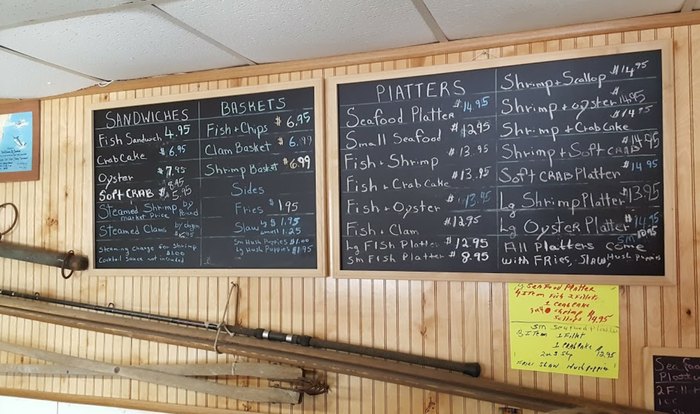 SANDWICHES
Fish Sandwich 4.95
Crab Cake $6.95
Oyster $7.95
Soft CRAB
Steamed Shrimp by pound
market Price
Steamed Clams by dozen
$6.95
Steaming charge for Shrimp
$1.00
Cocktail Sauce not included
BASKETS
Fish + Chips $6.95
Clam Basket $6.99
Shrimp Basket $6.99
Sides
Fries $1.95
Slaw $1.95
small 1.25
Sm Hush Puppies $1.00
Lg Hush Puppies $1.95
PLATTERS
Seafood Platter $14.95
Small Seafood $12.95
Fish + Shrimp $13.95
Fish + Crab Cake $13.95
Fish + Oyster $13.95
Fish + Clam $12.95
Lg FISH Platter $12.95
Sm FISH Platter $8.95
Shrimp + Scallop $14.95
Shrimp + Oyster $14.95
Shrimp + Crab Cake $14.95
Shrimp + Soft CRAB $14.95
Soft CRAB Platter $14.95
Lg Shrimp Platter $13.95
Lg Oyster Platter $14.95
Sm
All Platters Come
with FRIES, SLAW, Hush Puppies
Lg Seafood Platter
4 Item Fish 2 Fillets
1 CRAB Cake
Shrimp
Scallops $14.95
Sm Seafood Platter
3 Item 1 Fillet
1 CRAB Cake
$12.95
Fries Slaw Hush Puppies
Seafood
2 Fill